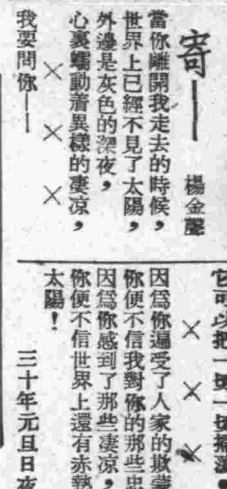 寄——
楊金馨
當你離開我走去的時候，
世界上已經不見了太陽，
外邊是灰色的深夜，
心裏蠕動着異樣的淒凉，
× × ×
我要問你——
它可以把一切一切掃蕩，
× × ×
因爲你遍受了人家的欺
你便不信我對你的那些忠
因爲你感到了那些淒凉，
你便不信世界上還有赤熱
太陽！
三十年元旦日夜